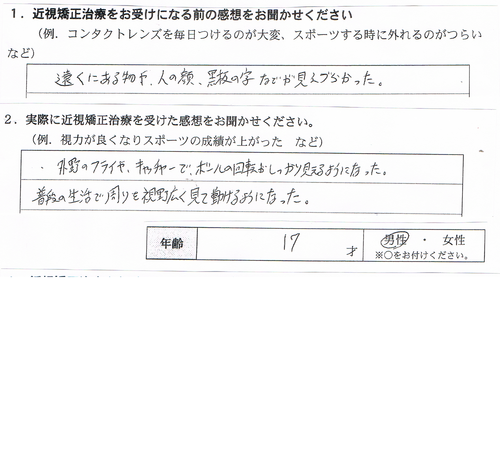 1．近視矯正治療をお受けになる前の感想をお聞かせください
（例．コンタクトレンズを毎日つけるのが大変、スポーツする時に外れるのがつらい
など）
遠くにある物や、人の顔、黒板の字などが見えづらかった。
2．実際に近視矯正治療を受けた感想をお聞かせください。
（例．視力が良くなりスポーツの成績が上がった　など）
・外野のフライや、キャッチャーで、ボールの回転がしっかり見えるようになった。
普段の生活で周りを視野広く見て動けるようになった。
年齢　17　才　男性　・　女性
※○をお付けください。